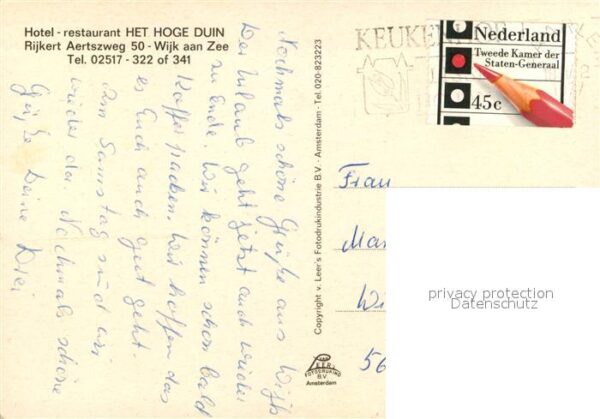 Hotel - restaurant HET HOGE DUIN
Rijkert Aertszweg 50 - Wijk aan Zee
Tel. 02517 - 322 of 341
Nochmals schöne Grüße aus Wijk
Der Urlaub geht jetzt auch wieder
zu Ende. Wir können schon bald
Koffer packen. Wir hoffen das
es Euch auch gut geht.
Am Samstag sind wir
wieder da. Nochmals schöne
Grüße Deine Drei
Copyright v. Leer's Fotodrukindustrie B.V. - Amsterdam - Tel. 020-823223
LEER'S
FOTODRUKIND
B.V.
Amsterdam
KEUKENHOF
Nederland
Tweede Kamer der
Staten-Generaal
45c
Frau
Wi
56
privacy protection
Datenschutz